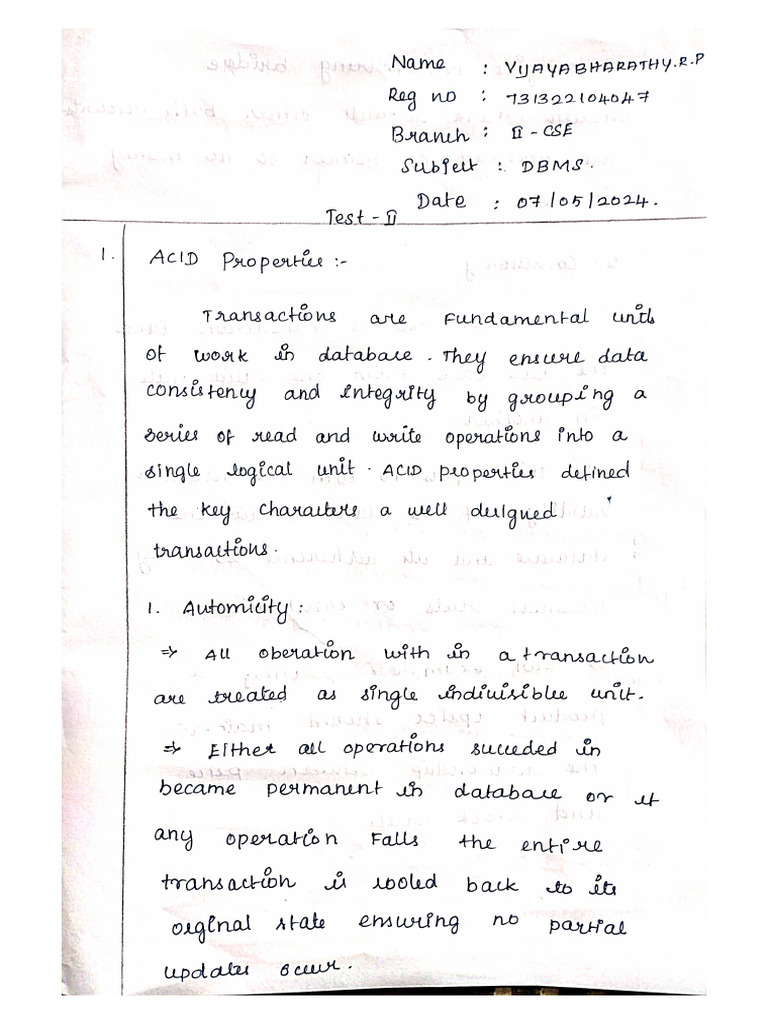 Name : VIJAYABHARATHY.R.P
Reg no : 731322104047
Branch : II - CSE
Subject : DBMS.
Date : 07/05/2024.
Test - II
1. ACID Properties :-
Transactions are Fundamental units
of work in database. They ensure data
consistency and integrity by grouping a
series of read and write operations into a
single logical unit. ACID properties defined
the key characters a well designed
transactions.
1. Automicity :
⇒ All oberation with in a transaction
are treated as single indivisible unit.
⇒ Either all operations succeded in
became permanent in database or if
any operation Falls the entire
transaction is rooled back to its
orginal state ensuring no partial
updates occur.